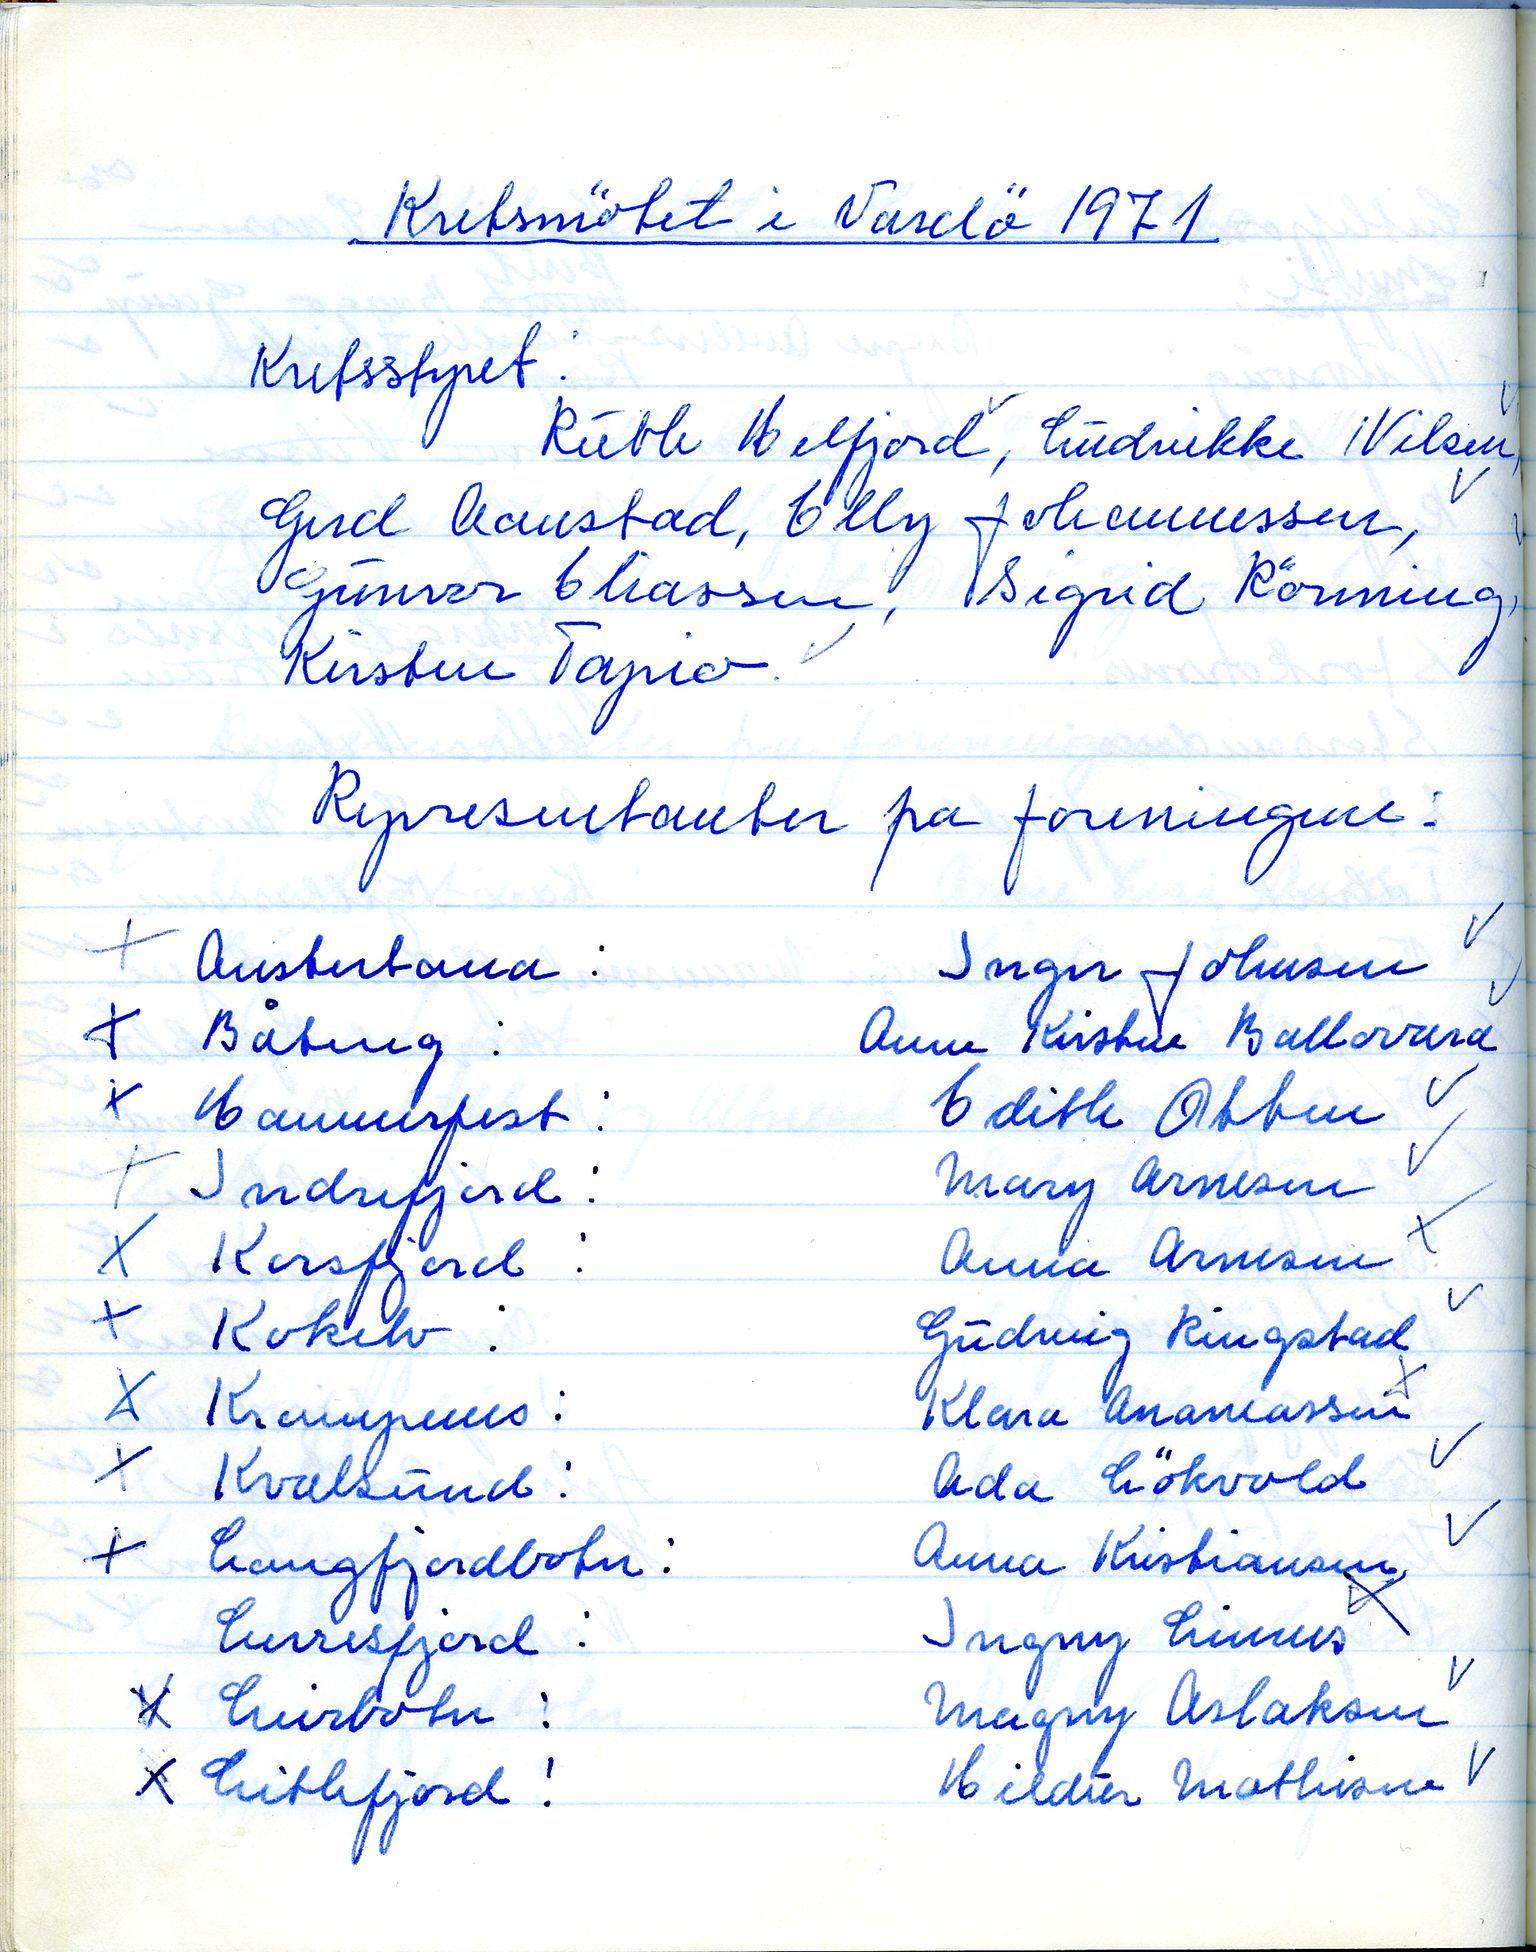 Kretsmötet i Vardö 1971
Kretsstyret:
Ruth Helfjord, Ludrikke Nilsen,
Gerd Aanstad, Elly Johannessen,
Gunvor Eliassen, Sigrid Rönning,
Kirsten Tapio.
Representanter på foreningene:
Austertana: Inger Johnsen
Båteng: Anne Kirsten Ballovara
Hammerfest: Edith Otten
Indrefjord: Mary Arnesen
Korsfjord: Anna Arnesen
Kokelv: Gudveig Ringstad
Krampenes: Klara Ananiassen
Kvalsund: Ada Lökvold
Langfjordbotn: Anna Kristiansen
Lerresfjord: Ingny Limnes
Leirbotn: Magny Aslaksen
Litlefjord: Hildur Mathisen